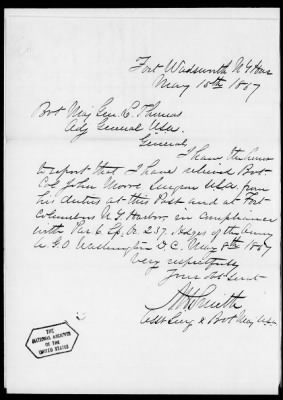 Fort Wadsworth N Y Har
May 15th 1867
Bvt Maj Gen. L. Thomas
Adj General U.S.A.
General
I have the honor
to report that I have relieved Bvt
Col John Moore Surgeon U.S.A. from
his duties at this Post and at Fort
Columbus N.Y. Harbor, in compliance
with Par 6 Sp. O. 237. Hdqrs of the Army
A.G.O Washington D.C. May 8th 1867
Very respectfully
Your Obt Servt
Smith
Asst Surg & Bvt Maj U.S.A.
THE
NATIONAL ARCHIVES
OF THE
UNITED STATES